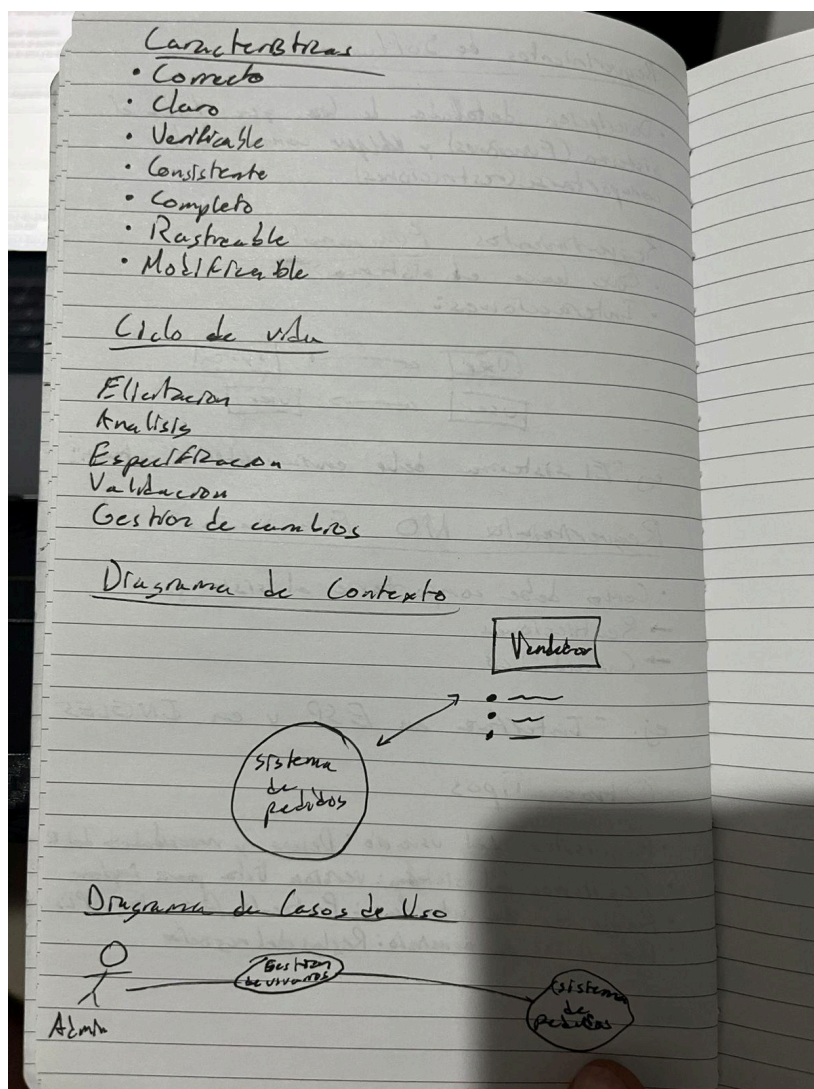 Caracteristicas
• Correcto
• Claro
• Verificable
• Consistente
• Completo
• Rastreable
• Modificable
Ciclo de vida
Elicitacion
Analisis
Especificacion
Validacion
Gestion de cambios
Diagrama de Contexto
Vendedor
sistema
de
pedidos
Diagrama de Casos de Uso
Gestion
de usuarios
sistema
de
pedidos
Admin